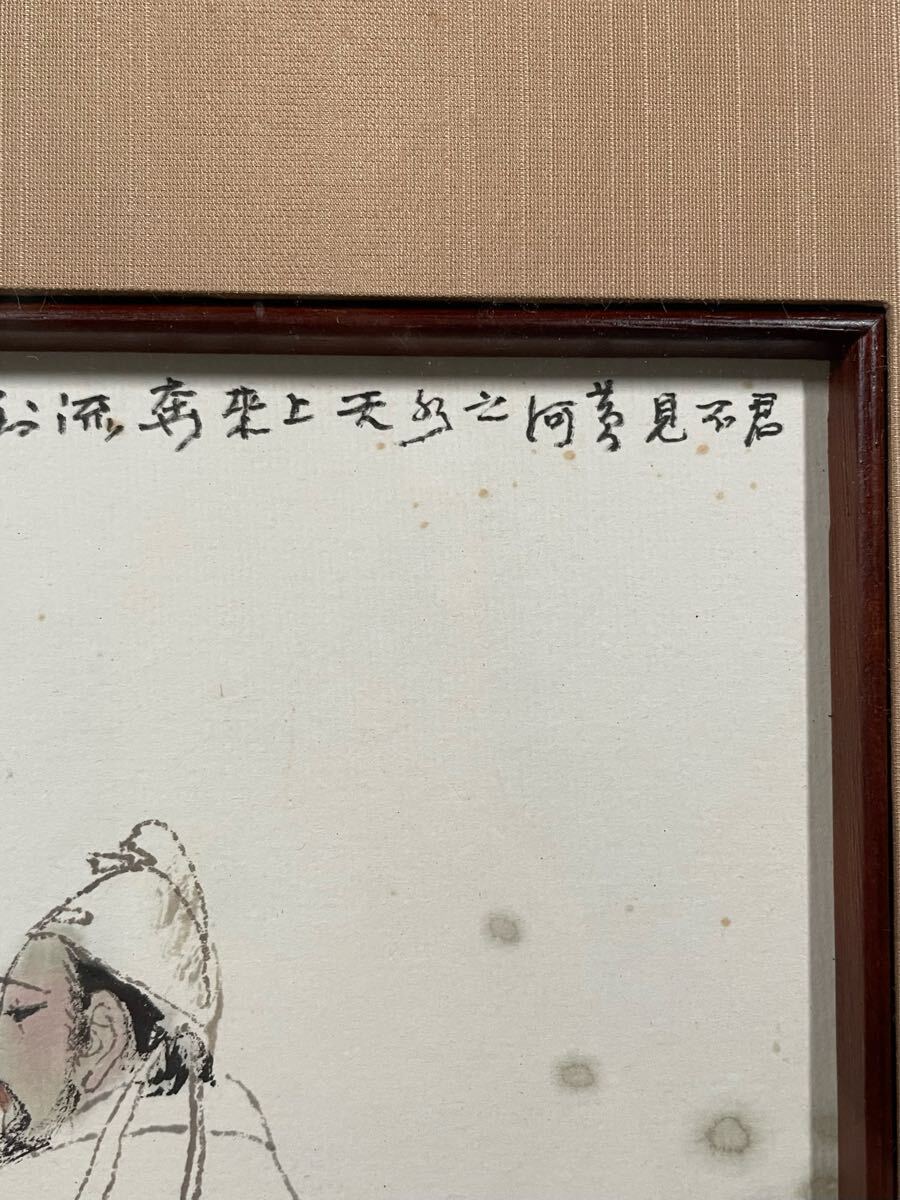 君不見黃河之水天上來奔流到